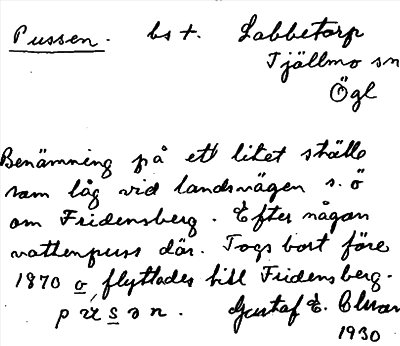 Pussen. bs t. Labbetorp
Tjällmo sn
Ögl
Benämning på ett litet ställe
som låg vid landsvägen s. ö
om Fridensberg. Efter någon
vattenpuss där. Togs bort före
1870 o, flyttades till Fridensberg.
Gustaf E.
1930